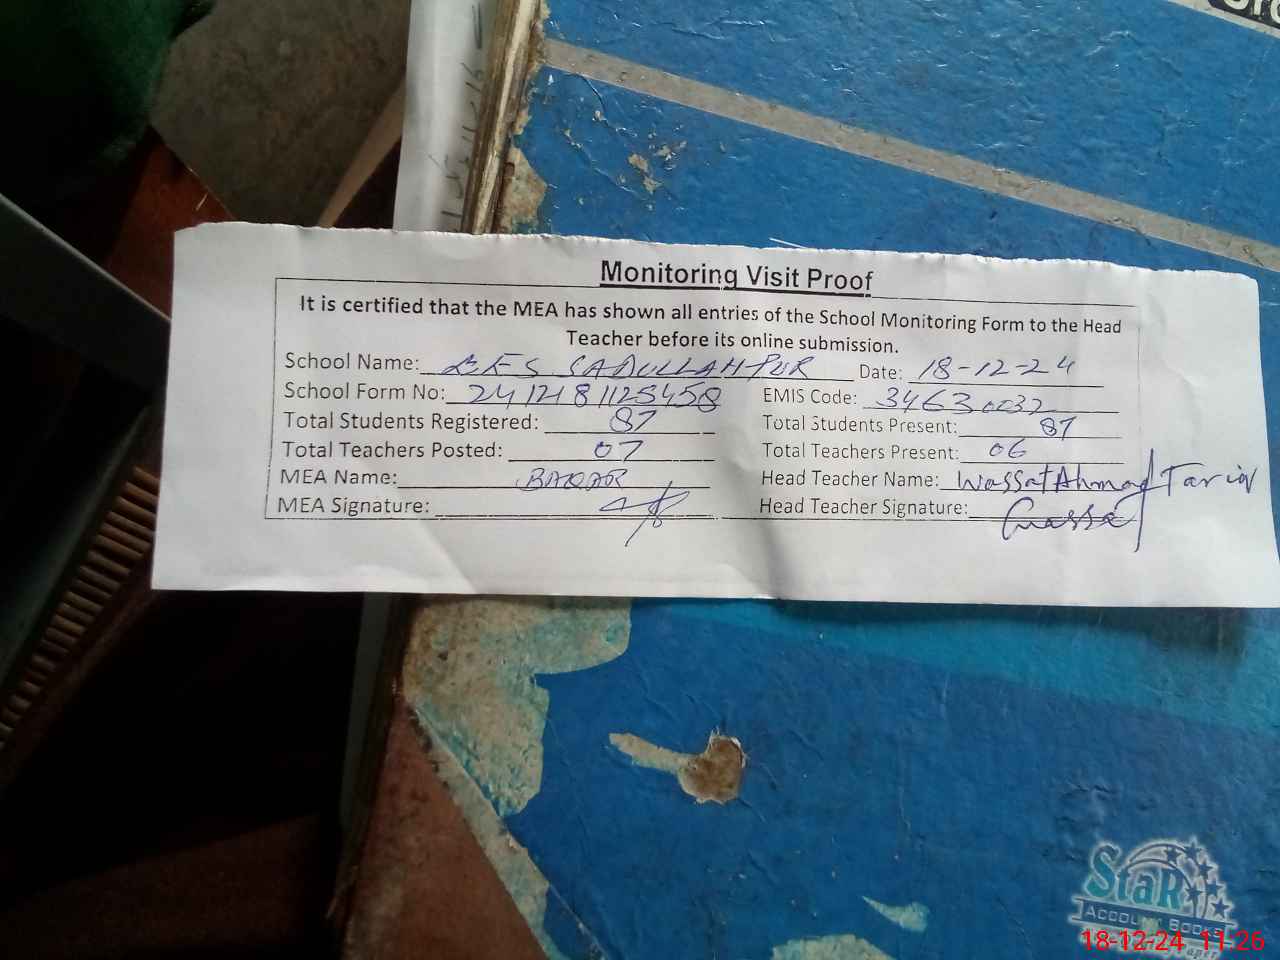 Monitoring Visit Proof
It is certified that the MEA has shown all entries of the School Monitoring Form to the Head
Teacher before its online submission.
School Name: SADULLAHPUR Date: 18-12-24
School Form No: 2412181125458 EMIS Code: 34630032
Total Students Registered: 87 Total Students Present: 87
Total Teachers Posted: 07 Total Teachers Present: 06
MEA Name: BAQAR Head Teacher Name: Wassat Ahmad Tariq
MEA Signature: Head Teacher Signature:
StaR
ACCOUNT BOOKS
18-12-24 11:26